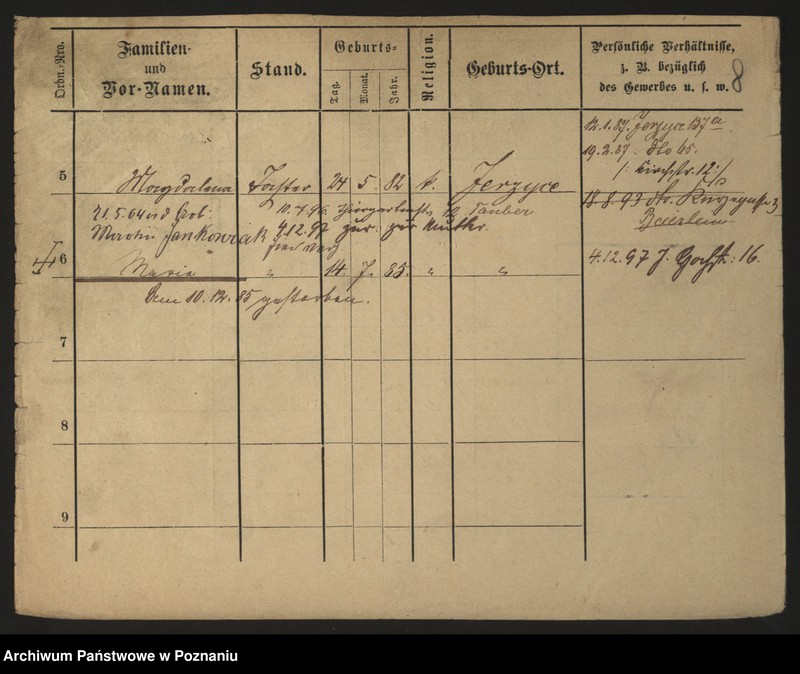 Ordn.-Nro.
Familien-
und
Vor-Namen.
Stand.
Geburts-
Tag.
Monat.
Jahr.
Religion.
Geburts-Ort.
Persönliche Verhältnisse,
z. B. bezüglich
des Gewerbes u. s. w.
8
12.1.87. Jerzyce 137a
19.2.87. dto 65.
/: Kirchstr. 12 :/
5 Magdalena Tochter 24 5. 82 k. Jerzyce
18.8.93 dto.
21.5.04 10.7.96. 12 Tauber
Martin Jankowiak 4.12.97 zur.
6 Maria " 14. 7. 85. " " 4.12.97 J. : 16.
Am 10.12.85 gestorben.
7
8
9
Archiwum Państwowe w Poznaniu